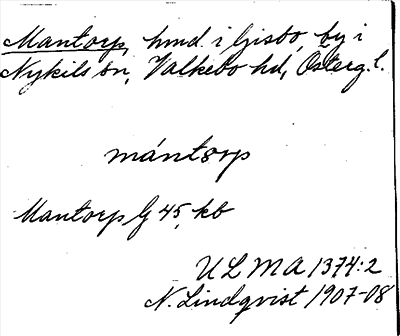 Mantorp, hmd. i Gisbo, by i
Nykils sn, Valkebo hd, Österg. l.
mántorp
Mantorp G 45, kb
ULMA 1374:2
N. Lindqvist 1907-08